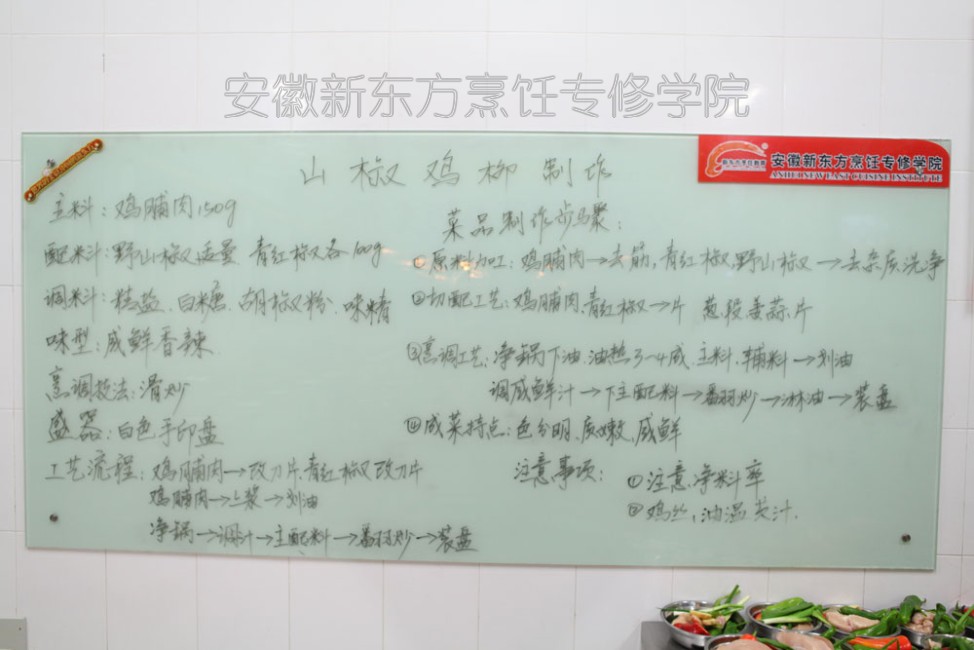 安徽新东方烹饪专修学院
安徽新东方烹饪专修学院
ANHUI NEW EAST CUISINE INSTITUTE
山椒鸡柳制作
主料：鸡脯肉150g
配料：野山椒适量 青红椒各100g
调料：精盐、白糖、胡椒粉、味精
味型：咸鲜香辣
烹调技法：滑炒
盛器：白色手印盘
工艺流程：鸡脯肉→改刀片，青红椒改刀片
鸡脯肉→上浆→划油
净锅→调汁→主配料→翻炒→装盘
菜品制作步骤：
①原料加工：鸡脯肉→去筋，青红椒，野山椒→去杂质，洗净
②切配工艺：鸡脯肉，青红椒→片 葱段姜蒜片
③烹调工艺：净锅下油，油热3~4成，主料、辅料→划油
调咸鲜汁→下主配料→翻炒→淋油→装盘
④成菜特点：色分明，质嫩，咸鲜
注意事项：
①注意、净料率
②鸡丝，油温，芡汁.